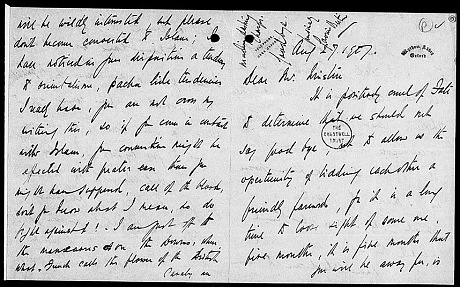 Aug 27, 1907.
Wytham Abbey,
Oxford.
Dear Mr. Winston
It is positively cruel of Fate
to determine that we should not
say good bye and to allow us the
opportunity of bidding each other a
friendly farewell, for it is a long
time to lose sight of some one,
five months, it is five months that
you will be away for, is
THE
CHARTWELL
TRUST
be wildly interested, but please
don't become converted to Islam; I
have noticed in your disposition a tendency
to orientalism, pacha like tendencies
I really have, you are not cross my
writing this, so if you come in contact
with Islam, your conversion might be
effected with greater ease than you
might have supposed, call of the blood,
don't you know what I mean, so do
fight against it! I am just off to
the manoeuvres on the Downs, when
what French calls the flower of the British